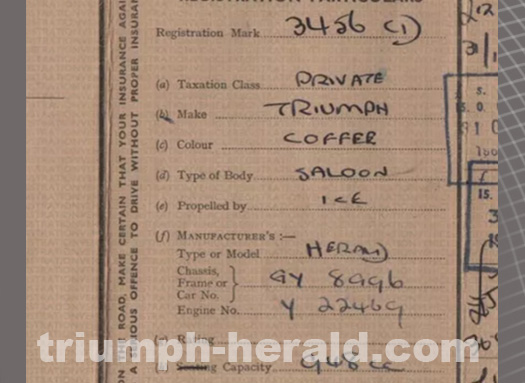 REGISTRATION PARTICULARS
Registration Mark
(a) Taxation Class PRIVATE
(b) Make TRIUMPH
(c) Colour COFFER
(d) Type of Body SALOON
(e) Propelled by ICE
(f) MANUFACTURER'S :—
Type or Model HERALD
Chassis, Frame or Car No. GY 8996
Engine No. Y 22469
Rating
Seating Capacity 948 cc
ON THE ROAD, MAKE CERTAIN THAT YOUR INSURANCE
A SERIOUS OFFENCE TO DRIVE WITHOUT PROPER
triumph-herald.com